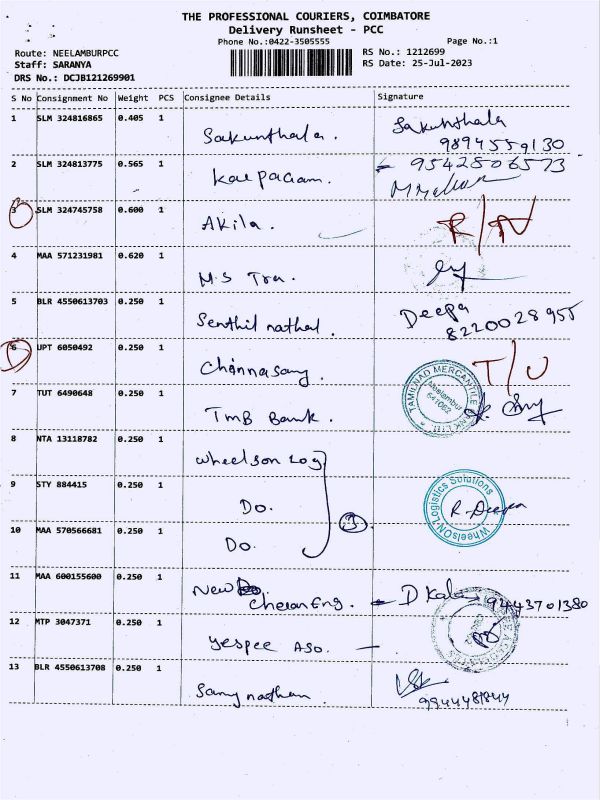 THE PROFESSIONAL COURIERS, COIMBATORE
Delivery Runsheet - PCC
Phone No.:0422-3505555 Page No.:1
Route: NEELAMBURPCC RS No.: 1212699
Staff: SARANYA RS Date: 25-Jul-2023
DRS No.: DCJB121269901
S No Consignment No Weight PCS Consignee Details Signature
1 SLM 324816865 0.405 1 Sakunthala. Sakunthala
9894559130
2 SLM 324813775 0.565 1 Karpagam. 9542806573
3 SLM 324745758 0.600 1 Akila. R/N
4 MAA 571231981 0.620 1 M.S Tra.
5 BLR 4550613703 0.250 1 Senthil nathal. Deepa
8220028955
6 UPT 6050492 0.250 1 Chinnasamy. T/U
7 TUT 6490648 0.250 1 TMB Bank. TAMILNAD MERCANTILE BANK LTD
Neelambur
641062
8 NTA 13118782 0.250 1 Wheelson Log
9 STY 884415 0.250 1 Do. WheelsON Logistics Solutions
R. Deepa
10 MAA 570566681 0.250 1 Do. 3
11 MAA 600155600 0.250 1 New
Cheran Eng. D Kala 9443701380
12 MTP 3047371 0.250 1 Yespee Aso.
13 BLR 4550613708 0.250 1 Samynathan.
9944481844